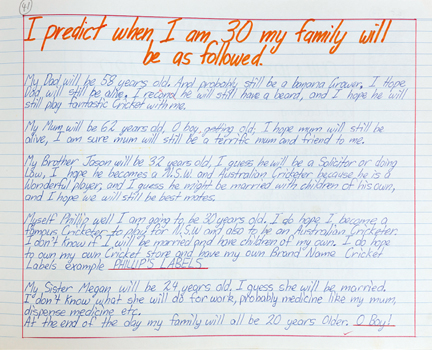 41
I predict when I am 30 my family will
be as followed.
My Dad will be 58 years old. And probably still be a banana Grower. I Hope
Dad, will still be alive. I recond he will still have a beard, and I hope he will
still play fantastic Cricket with me.
My Mum will be 62 years old. O boy, getting old; I hope mum will still be
alive, I am sure mum will still be a terrific mum and friend to me.
My Brother Jason will be 32 years old, I guess he will be a Solicitor or doing
Law, I hope he becomes a N.S.W. and Australian Cricketer because he is a
Wonderful player, and I guess he might be married with children of his own,
and I hope we will still be best mates.
Myself Phillip well I am going to be 30 years old. I do hope I, become a
famous Cricketer to play for N.S.W and also to be an Australian Cricketer.
I don't know if I will be married and have children of my own. I do hope
to own my own Cricket store and have my own Brand Name Cricket
Labels example PHILLIP'S LABELS
My Sister Megan will be 24 years old. I guess she will be married.
I don't know what she will do for work, probably medicine like my mum,
dispense medicine etc.
At the end of the day my family will all be 20 years Older. O Boy!